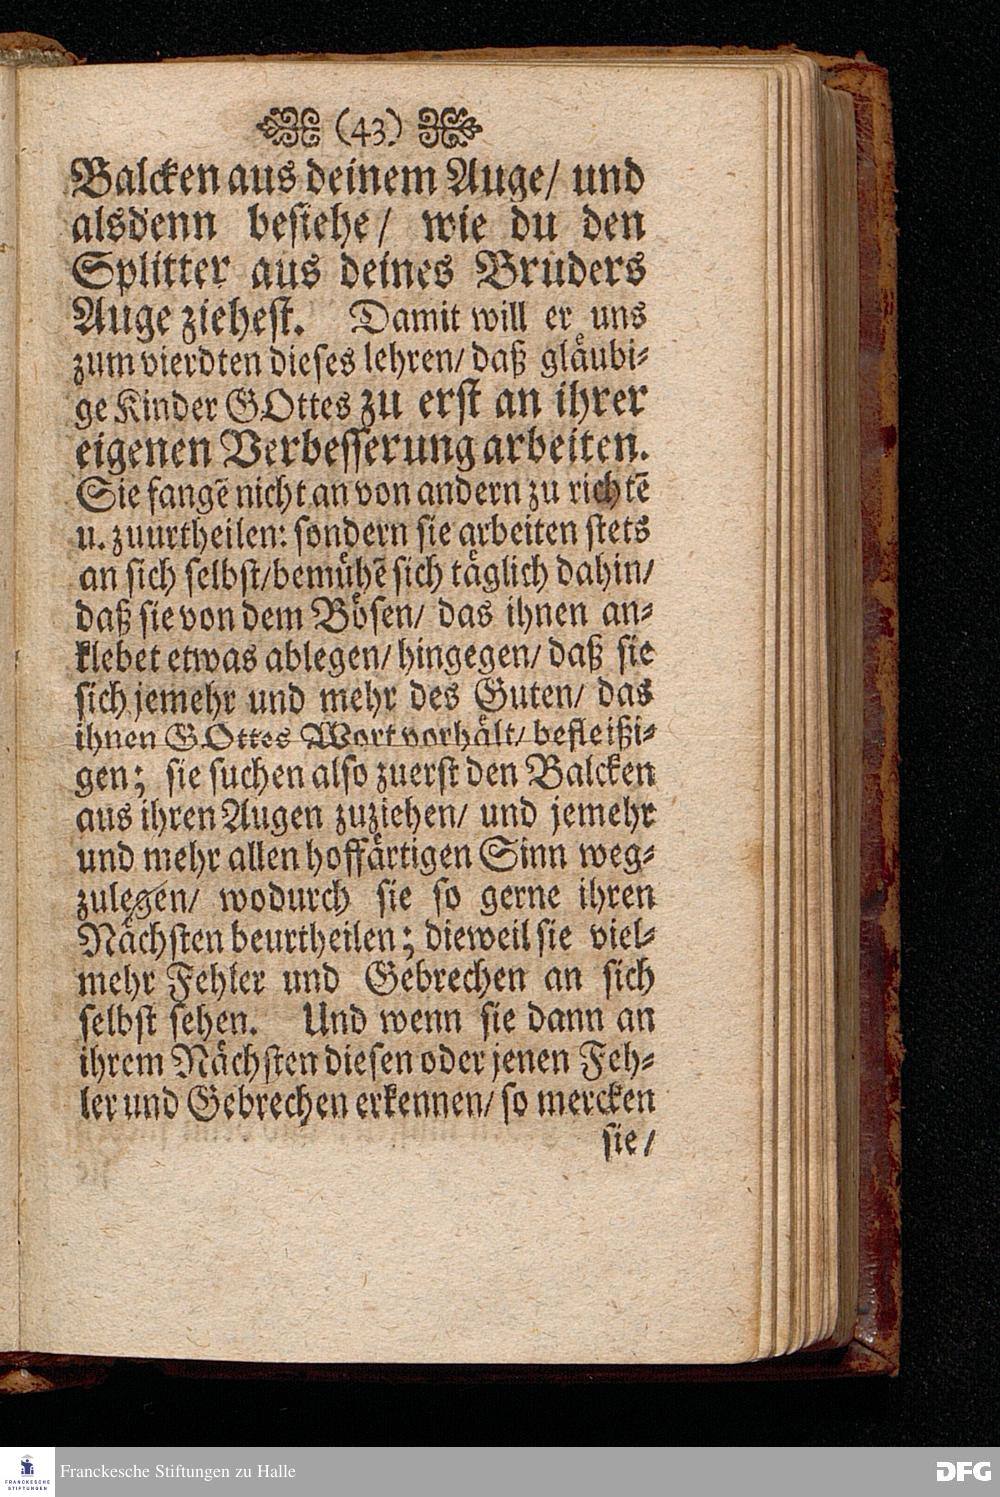 (43)
Balcken aus deinem Auge/ und
alsdenn besiehe/ wie du den
Splitter aus deines Bruders
Auge ziehest. Damit will er uns
zum vierdten dieses lehren/ daß gläubi-
ge Kinder GOttes zu erst an ihrer
eigenen Verbesserung arbeiten.
Sie fangē nicht an von andern zu richtē
u. zuurtheilen: sondern sie arbeiten stets
an sich selbst/ bemühē sich täglich dahin/
daß sie von dem Bösen/ das ihnen an-
klebet etwas ablegen/ hingegen/ daß sie
sich jemehr und mehr des Guten/ das
ihnen GOttes Wort vorhält/ befleißi-
gen; sie suchen also zuerst den Balcken
aus ihren Augen zuziehen/ und jemehr
und mehr allen hoffärtigen Sinn weg-
zulegen/ wodurch sie so gerne ihren
Nächsten beurtheilen; dieweil sie viel-
mehr Fehler und Gebrechen an sich
selbst sehen. Und wenn sie dann an
ihrem Nächsten diesen oder jenen Feh-
ler und Gebrechen erkennen/ so mercken
sie/
FRANCKESCHE
STIFTUNGEN
Franckesche Stiftungen zu Halle
DFG